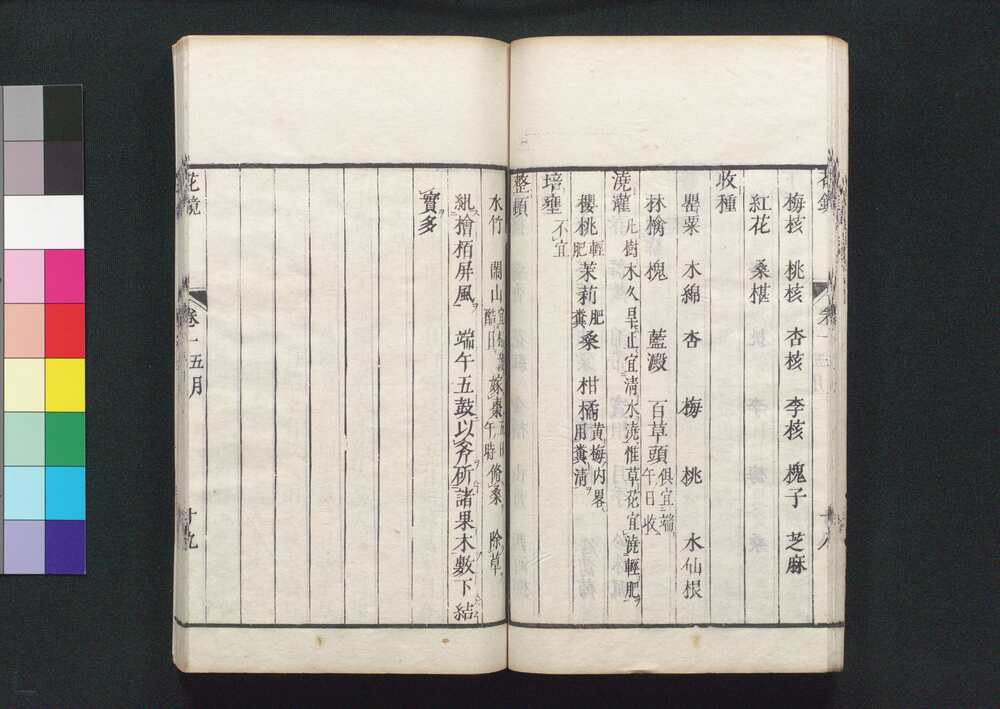 梅核　桃核　杏核　李核　槐子　芝麻
紅花　桑椹
收種
罌粟　水綿　杏　梅　桃　水仙根
林檎　槐　藍澱　百草頭俱宜端午日收
澆灌凡樹木久旱止宜清水澆惟草花宜澆輕肥
櫻桃輕肥茉莉肥糞桑　柑橘黃梅内畧用糞清
培壅不宜
整頓
水竹　閘山　嫁棗五日午時脩桑　除草
紥檜栢屏風　端午五鼓以斧斫諸果木數下結
實多
花鏡　卷一五月　十九